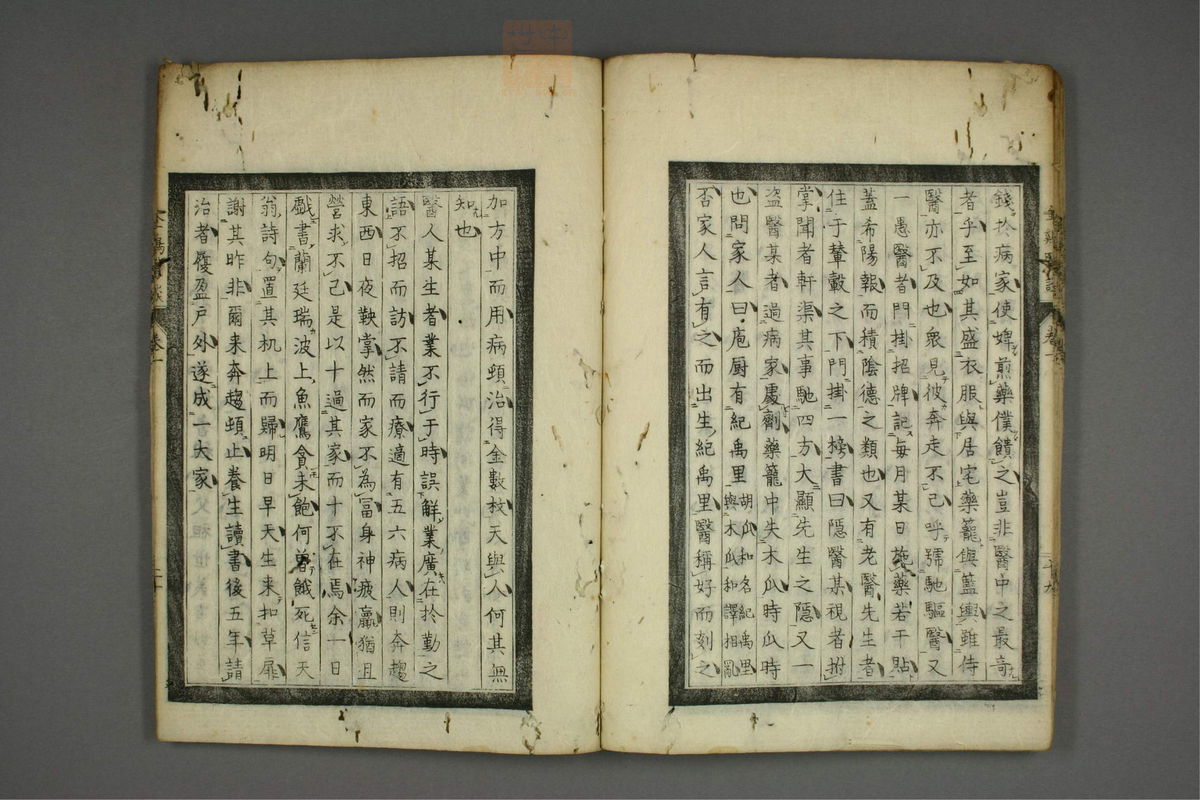 錢於病家使婢煎藥僕饋之豈非醫中之最奇
者乎至如其盛衣服與居宅藥籠與籃輿雖侍
醫亦不及也衆見彼奔走不已呼號馳驅醫又
一愚醫者門掛招牌記每月某日施藥若干貼
蓋希陽報而積陰德之類也又有老醫先生者
住于輦轂之下門掛一榜書曰隱醫某視者拊
掌聞者軒渠其事馳四方大顯先生之隱又一
盜醫某者過病家處劑藥籠中失木瓜時瓜時
也問家人曰庖厨有紀禹里胡瓜和名紀禹里與木瓜和譯相亂
否家人言有之而出生紀禹里醫稱好而刻之
加方中而用病頓治得金數枚天與人何其無
知也
醫人某生者業不行于時誤解業廣在於勤之
語不招而訪不請而療適有五六病人則奔趨
東西日夜鞅掌然而家不為冨身神疲羸猶且
營求不已是以十過其家而十不在焉余一日
戲書蘭廷瑞波上魚鷹貪未飽何曽餓死信天
翁詩句置其机上而歸明日早天生来扣草扉
謝其昨非爾来奔趨頓止養生讀書後五年請
治者履盈戸外遂成一大家
卷一